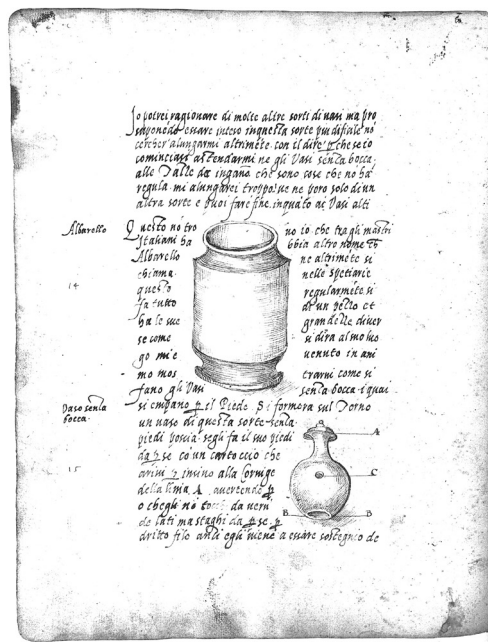 Io potrei ragionare di molte altre sorti di vasi ma pro
suponendo essare inteso in questa sorte piu dificile nó
cercher alungarmi altriméte con il dire p che se io
cominciass a stendarmi ne gli Vasi senza bocca
alle Talle da ingano che sono cose che no há
regula mi alungarei troppo ve ne poro solo di un
altra sorte e puoi fare fine in quáto ai Vasi alti
Albarello
Questo nó tro
Italiani ha
Albarello
chiama
questo
fa tutto
ha le sue
se come
go mi e
mo mos
fano gli Vasi
vo io che tra gli mastri
bbia altro nome ch
ne altriméte si
nelle spetiarie
regularméte si
di un pezzo et
grandezze diver
si dira al suo luo
venuto in ani
trarvi come si
senza bocca i quai
14
Vaso senza
bocca
si empano p il Piede Si formera sul Torno
un vaso di questa sorte senza
piedi poscia segli fa il suo piedi
da p se có un cartoccio che
arivi p insino alla Cornige
della linia A averende p
o chegli nó tochi da veru
de lati ma staghi da p se p
dritto filo anti egli viene a essare sostegno de
15
A
C
B
B